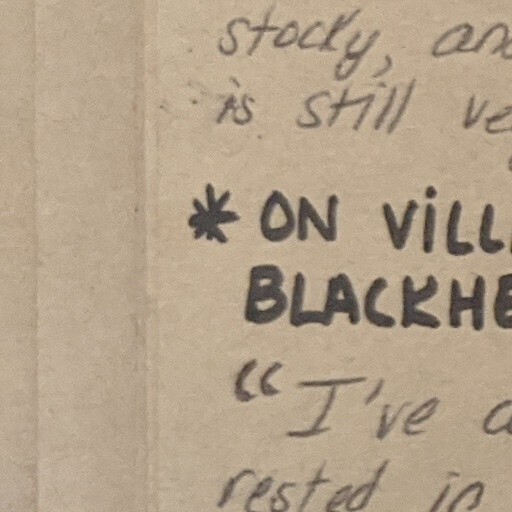 stocky, and
is still ve
* ON VILL
BLACKHE
"I've a
rested in